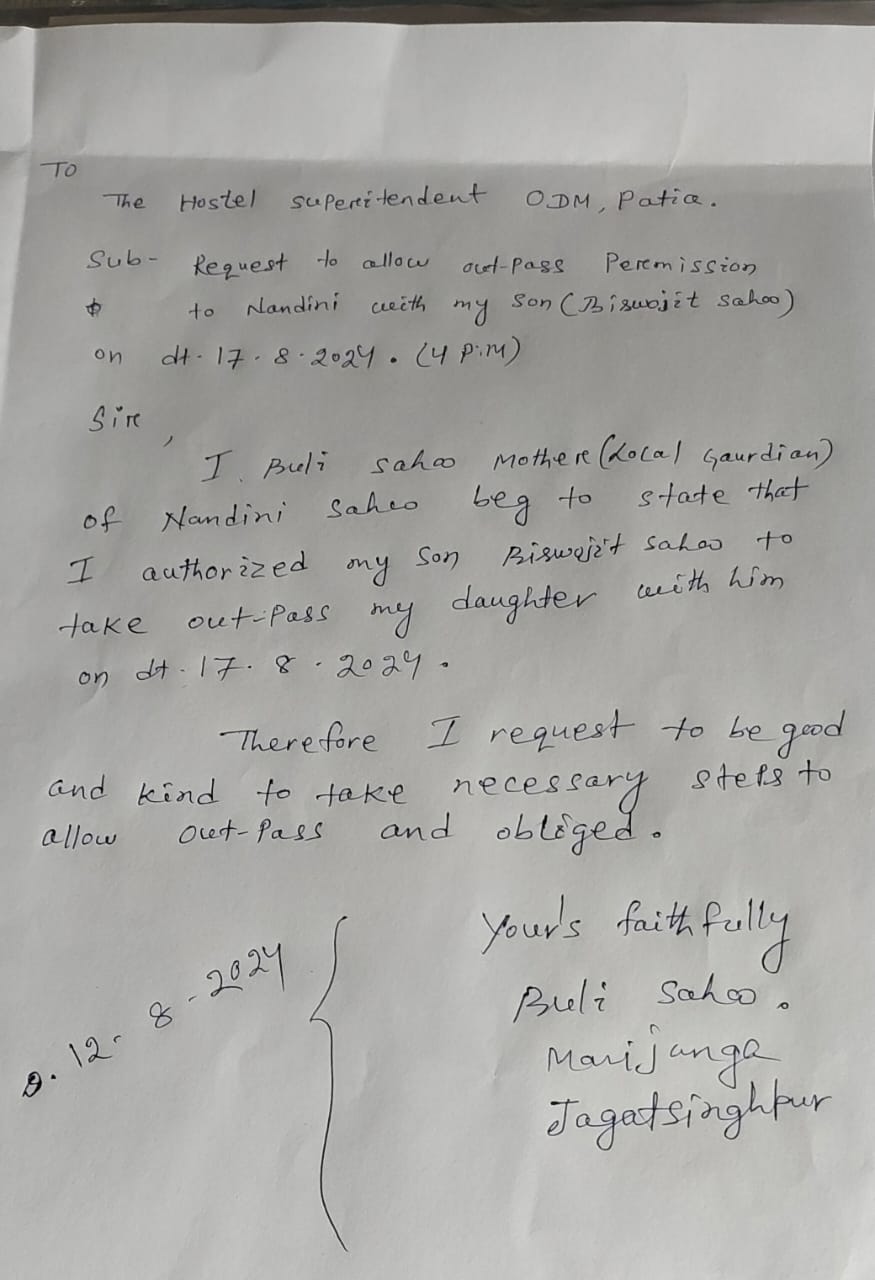 To
The Hostel superitendent ODM, Patia.
Sub- Request to allow out-pass Peremission
to Nandini with my Son (Biswojit sahoo)
on dt. 17.8.2024. (4 P.M)
Sir,
I. Buli sahoo Mother (Local Gaurdian)
of Nandini Sahoo beg to state that
I authorized my Son Biswojit Sahoo to
take out-pass my daughter with him
on dt. 17.8.2024.
Therefore I request to be good
and kind to take necessary steps to
allow out-Pass and obliged.
Your's faithfully
Buli Sahoo.
Marijanga
Jagatsinghpur
D. 12.8.2024